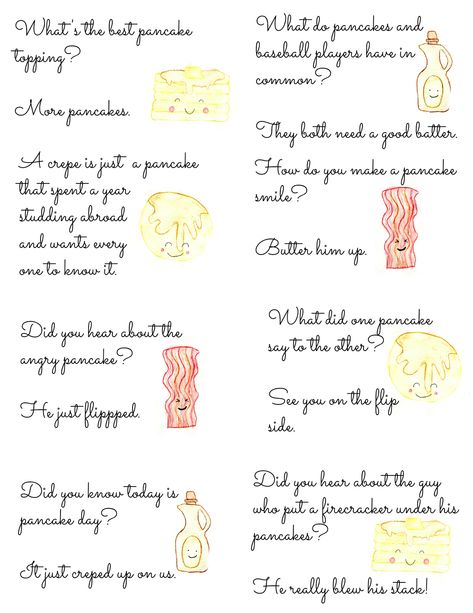 What's the best pancake
topping?
More pancakes.
What do pancakes and
baseball players have in
common?
They both need a good batter.
A crepe is just a pancake
that spent a year
studding abroad
and wants every
one to know it.
How do you make a pancake
smile?
Butter him up.
Did you hear about the
angry pancake?
He just flippped.
What did one pancake
say to the other?
See you on the flip
side.
Did you know today is
pancake day?
It just creped up on us.
Did you hear about the guy
who put a firecracker under his
pancakes?
He really blew his stack!